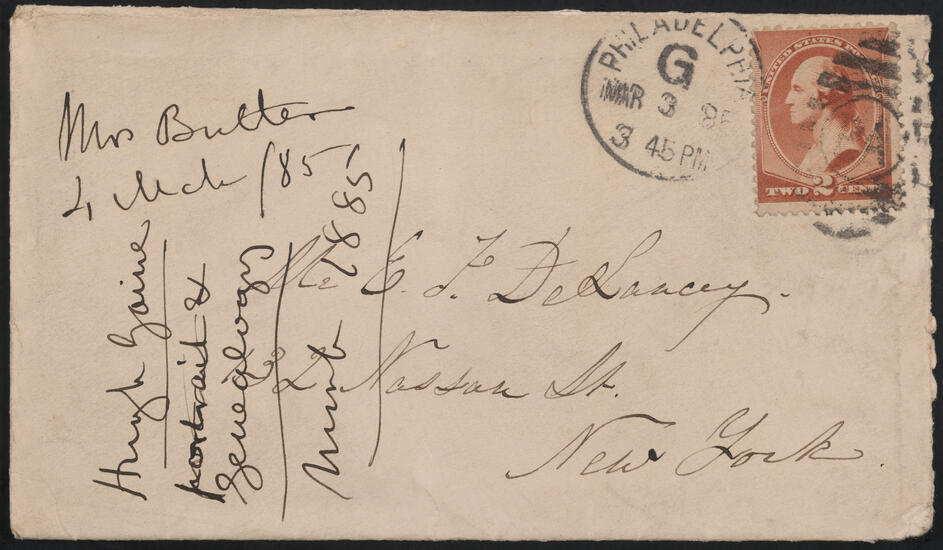 PHILADELPHIA
G
MAR 3 85
3 45 PM
UNITED STATES POS
TWO 2 CENTS
Mrs Butler
4 Mch /85
Mr E. F. DeLancey.
32 Nassau St.
New York.
Hugh Gaine
portrait &
Genealogy
1885